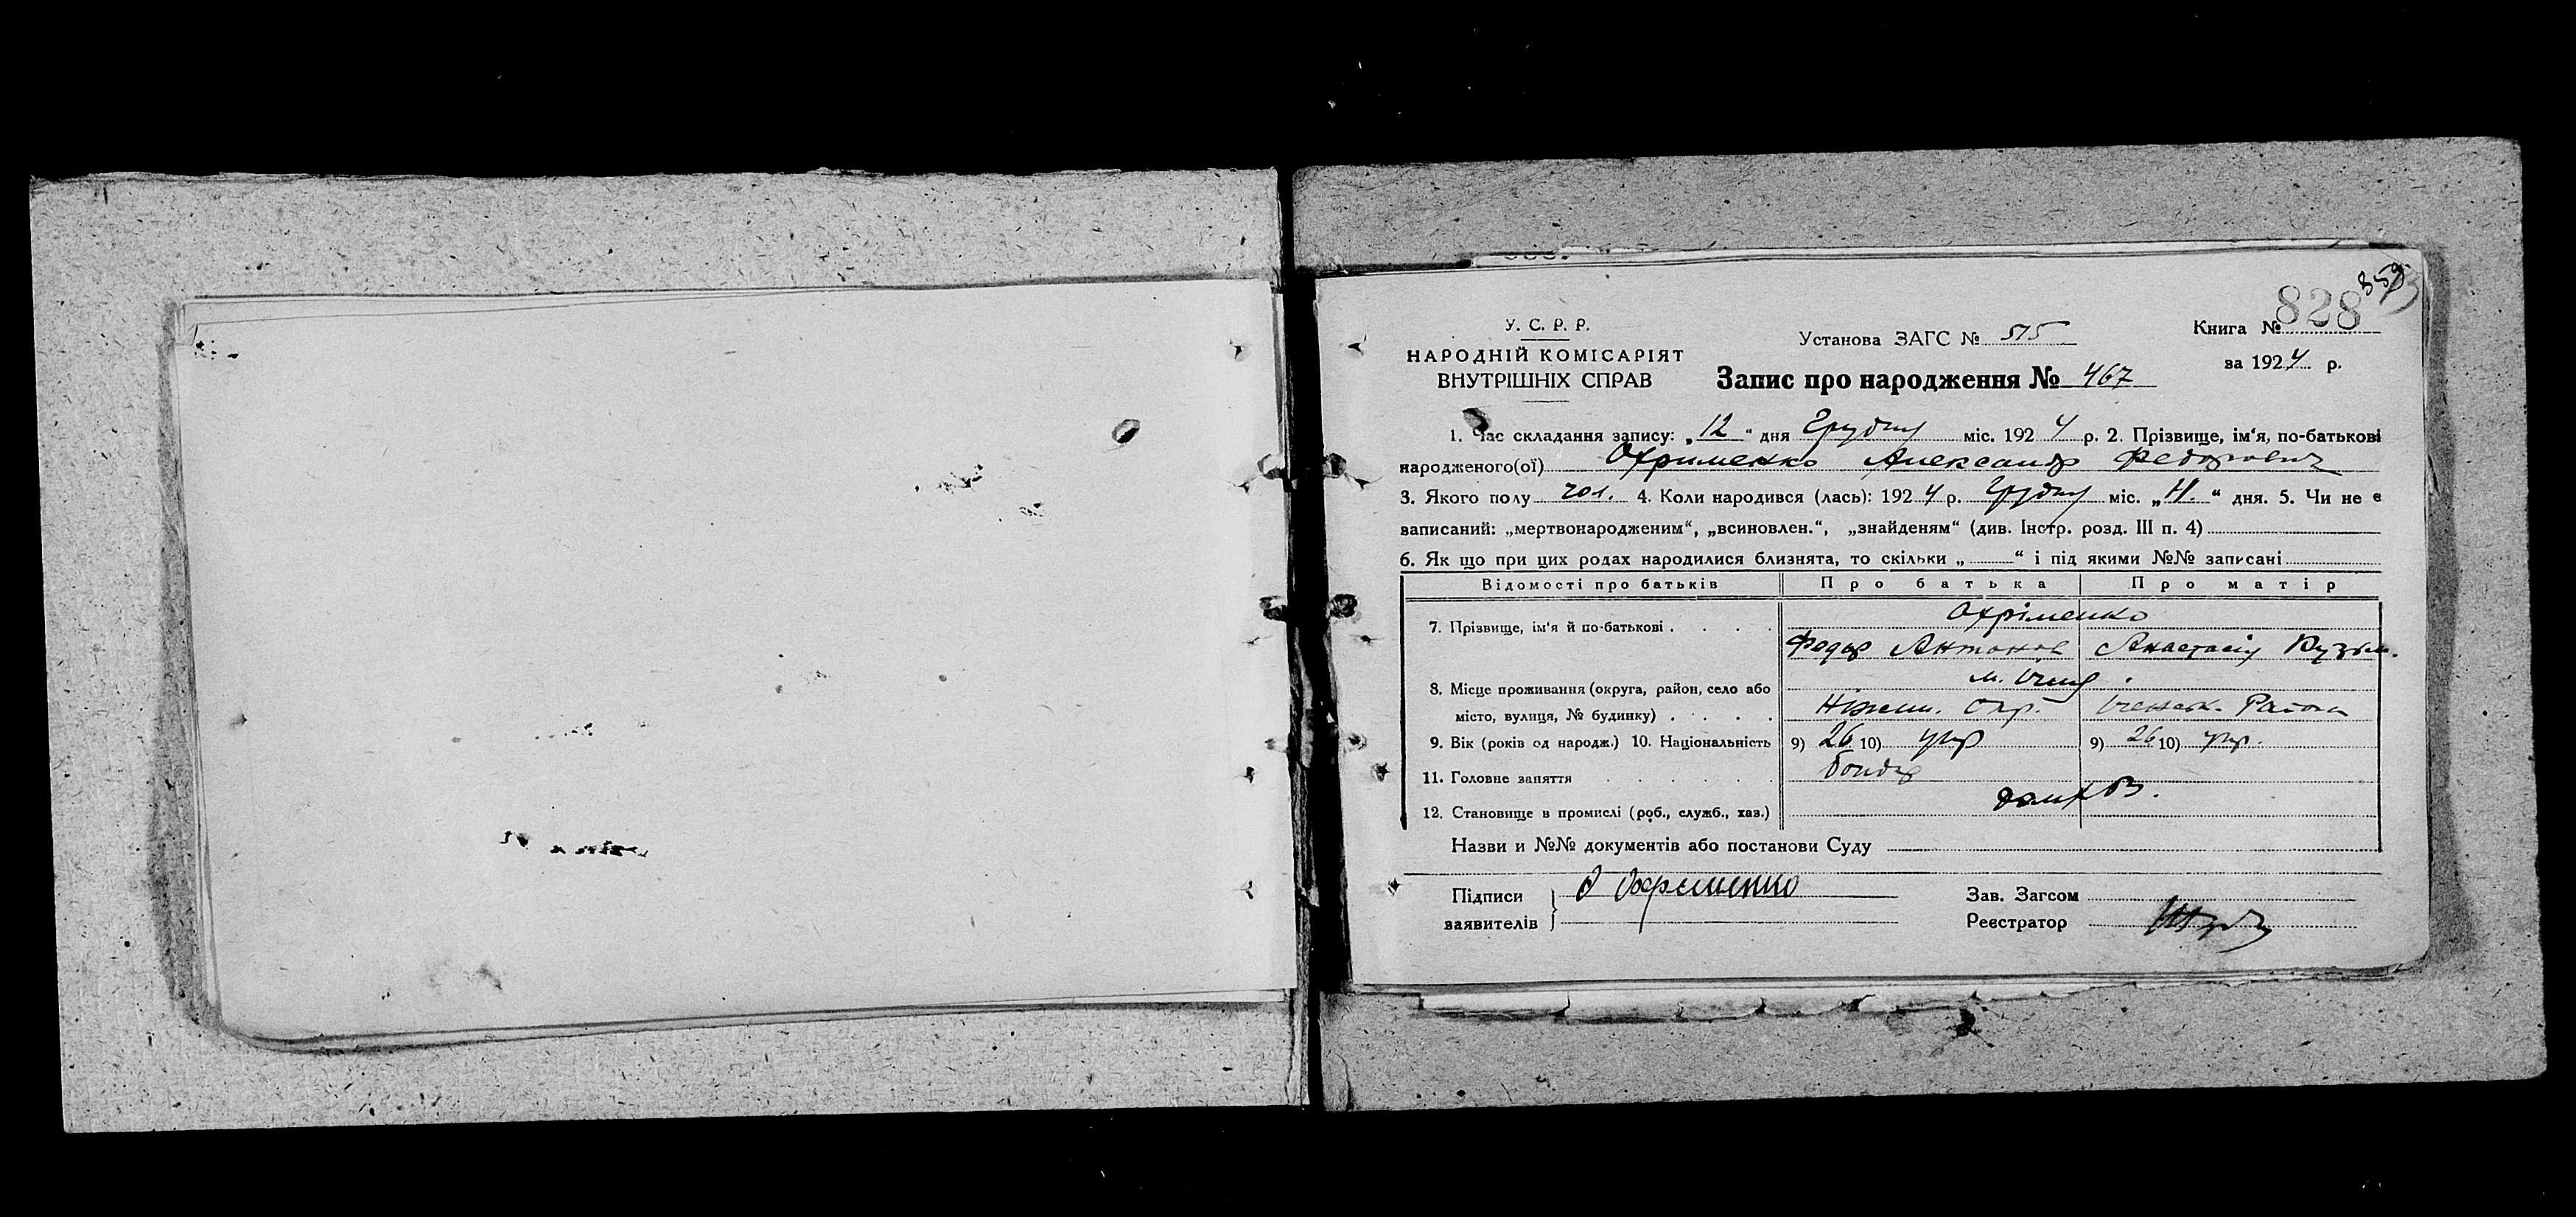 859
828
У. С. Р. Р.
НАРОДНІЙ КОМІСАРІЯТ
ВНУТРІШНІХ СПРАВ
Установа ЗАГС № 515
Книга №
за 1924 р.
Запис про народження № 467
1. Час складання запису: „12“ дня Грудня міс. 1924 р. 2. Прізвище, ім‘я, по-батькові
народженого(ої) Охрименко Александр Федорович
3. Якого полу чол. 4. Коли народився (лась): 1924 р. Грудня міс. „11.“ дня. 5. Чи не є
записаний: „мертвонародженим“, „всиновлен.“, „знайденям“ (див. Інстр. розд. III п. 4)
6. Як що при цих родах народилися близнята, то скільки „ “ і під якими №№ записані
Відомості про батьків Про батька Про матір
7. Прізвище, ім‘я й по-батькові . . . . Охріменко
Федор Антонов Анастасія Кузьм.
8. Місце проживання (округа, район, село або м. Ічня
місто, вулиця, № будинку) . . . . Ніжин. Окр. Іченськ. Района
9. Вік (років од народж.) 10. Національність 9) 26 10) укр 9) 26 10) укр.
11. Головне заняття . . . . . . бондар
12. Становище в промислі (роб., служб., хаз.)
Назви и №№ документів або постанови Суду
Підписи
заявителів
Охрименко
Зав. Загсом
Реєстратор